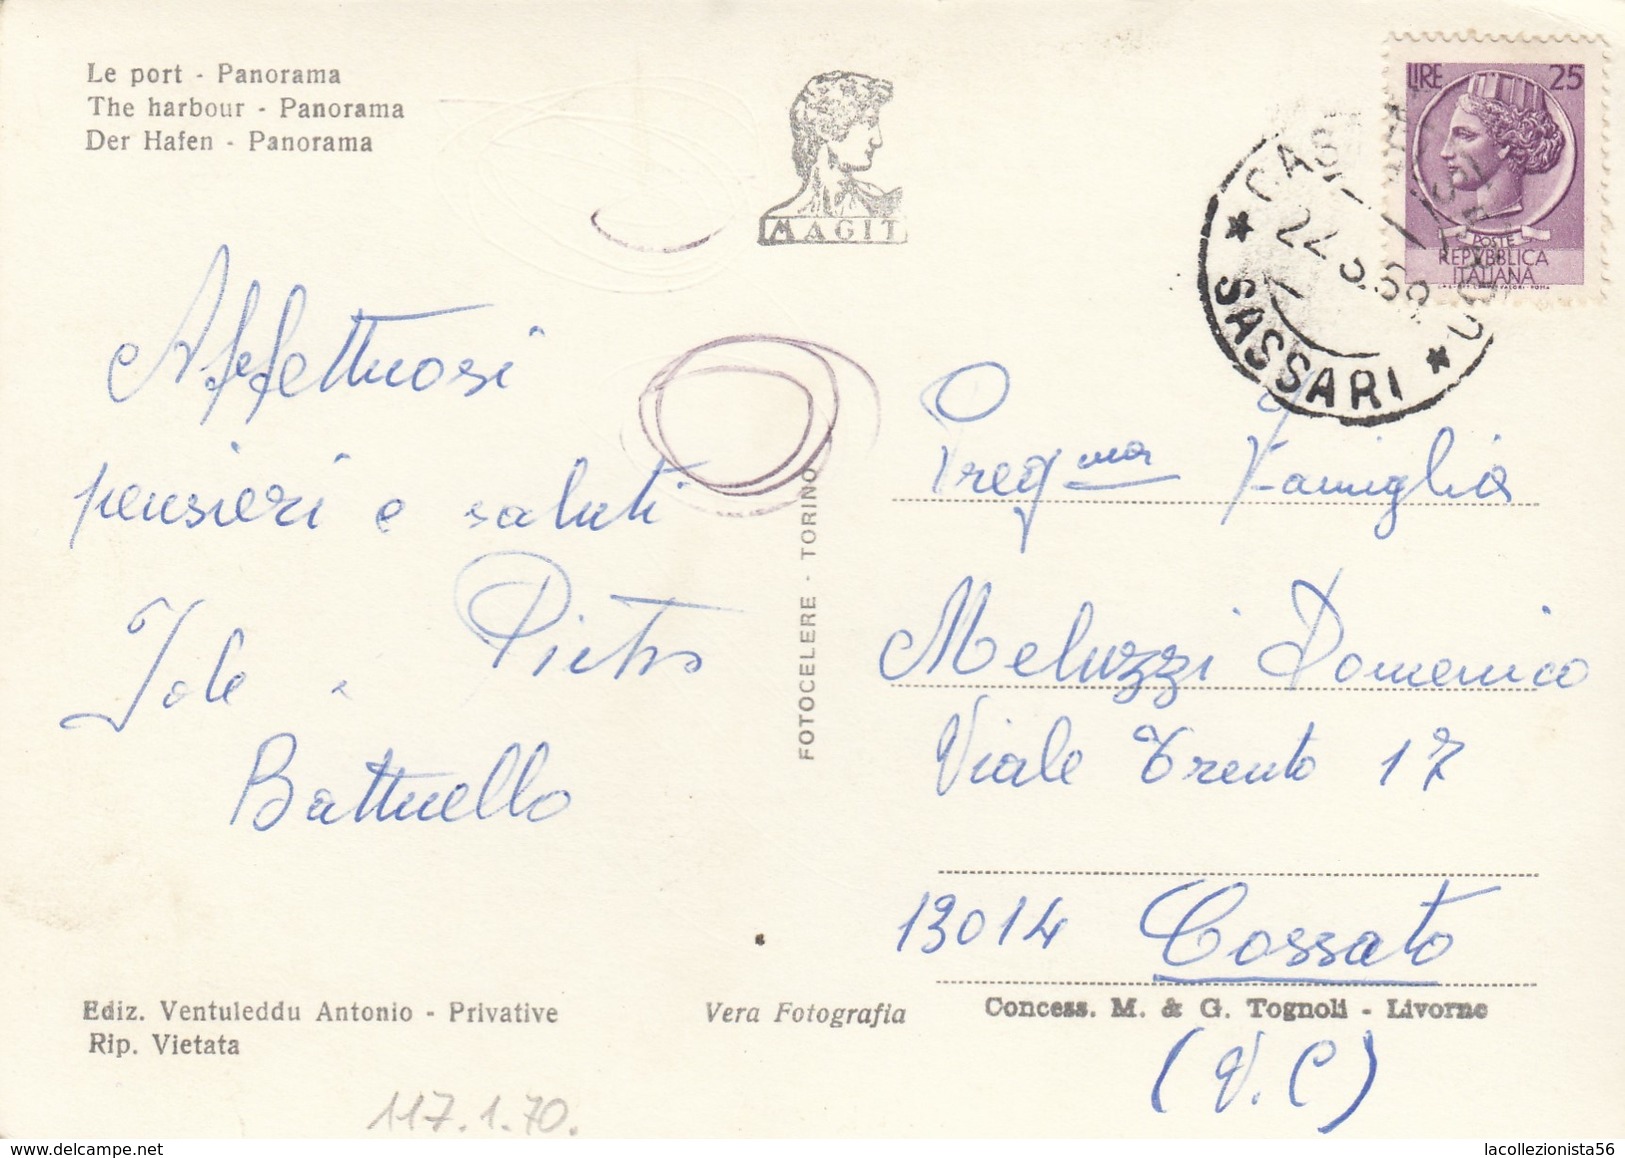 Le port - Panorama
The harbour - Panorama
Der Hafen - Panorama
MAGIT
LIRE 25
POSTE
REPVBBLICA
ITALIANA
SASSARI
Affettuosi
pensieri e saluti
Iole e Pietro
Battuello
FOTOCELERE - TORINO
Preg.ma Famiglia
Meluzzi Domenico
Viale Trento 17
13014 Cossato
(V.C)
Ediz. Ventuleddu Antonio - Privative
Rip. Vietata
Vera Fotografia
Concess. M. & G. Tognoli - Livorno
117.1.70.
lacollezionista56